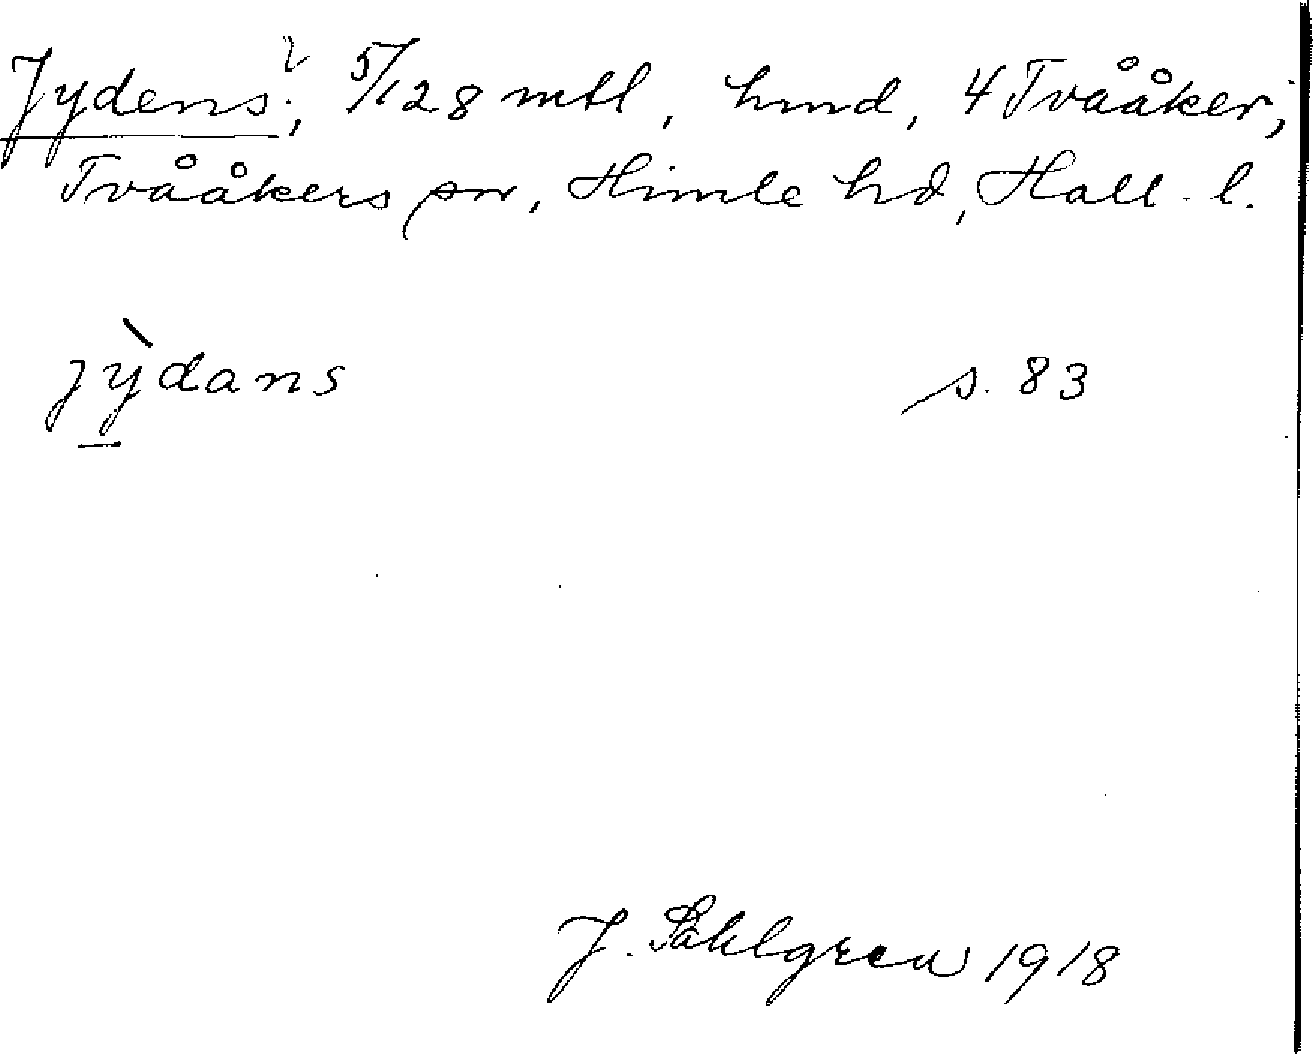 Jydens², 5/128 mtl, hmd, 4 Tvååker,
Tvååkers sn, Himle hd, Hall. l.
jỳ̱dans s. 83
J. Sahlgren 1918